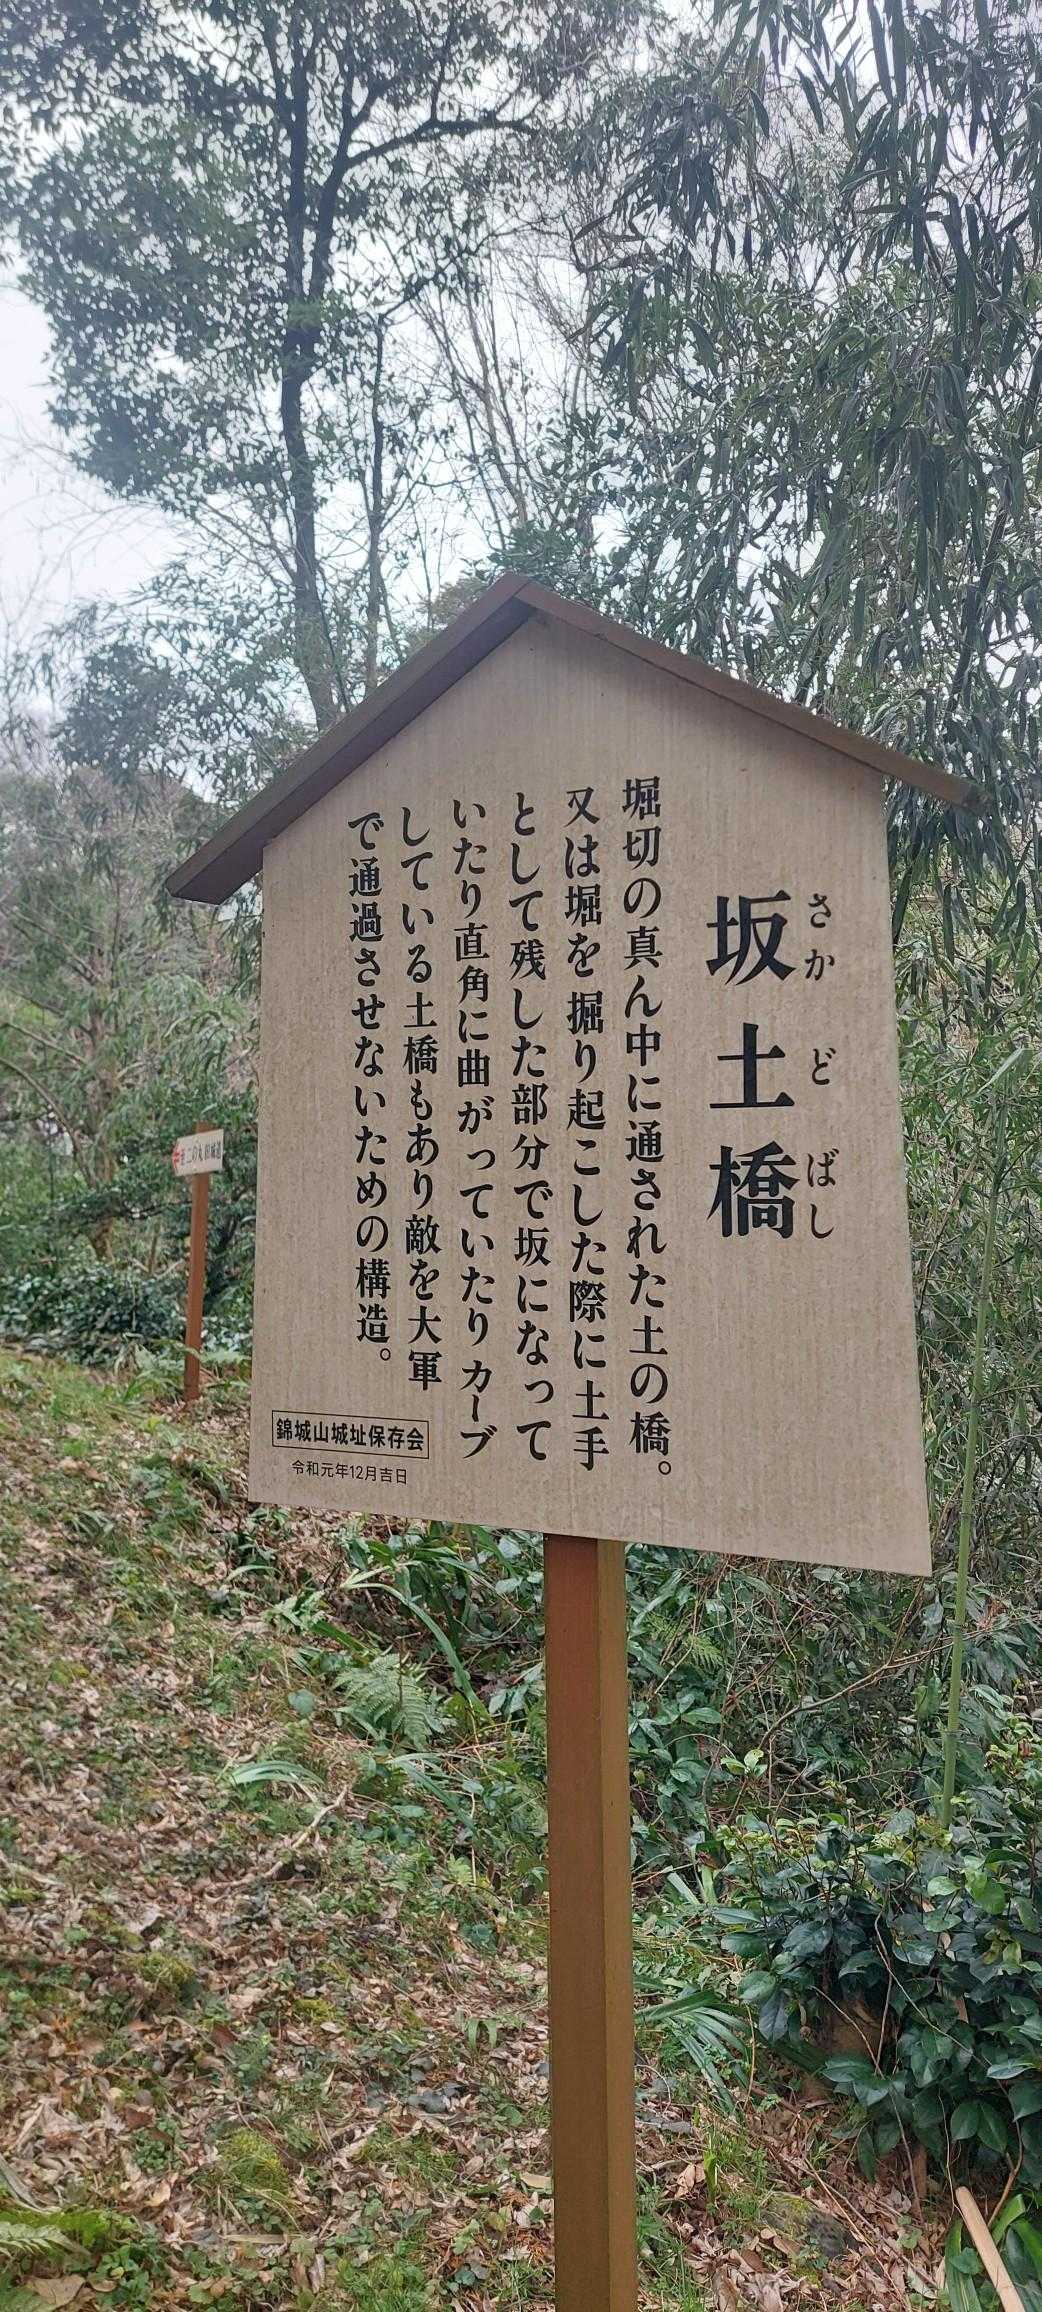 坂土橋
さかどばし
堀切の真ん中に通された土の橋。
又は堀を掘り起こした際に土手
として残した部分で坂になって
いたり直角に曲がっていたりカーブ
している土橋もあり敵を大軍
で通過させないための構造。
錦城山城址保存会
令和元年12月吉日
二の丸